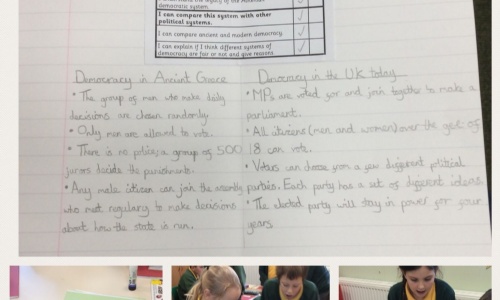 democratic system.
I can compare this system with other
political systems.
I can compare ancient and modern democracy
I can explain if I think different systems of
democracy are fair or not and give reasons.
Democracy in Ancient Greece
• The group of men who make daily
decisions are chosen randomly.
• Only men are allowed to vote.
• There is no police; a group of 500
jurors decide the punishments.
• Any male citizen can join the assembly
who meet regulary to make decisions
about how the state in run.
Democracy in the UK today
• MPs are voted for and join together to make a
parliament.
• All citizens (men and women) over the age of
18 can vote.
• Voters can choose from a few different political
parties. Each party has a set of different ideas.
• The elected party will stay in power for four
years.